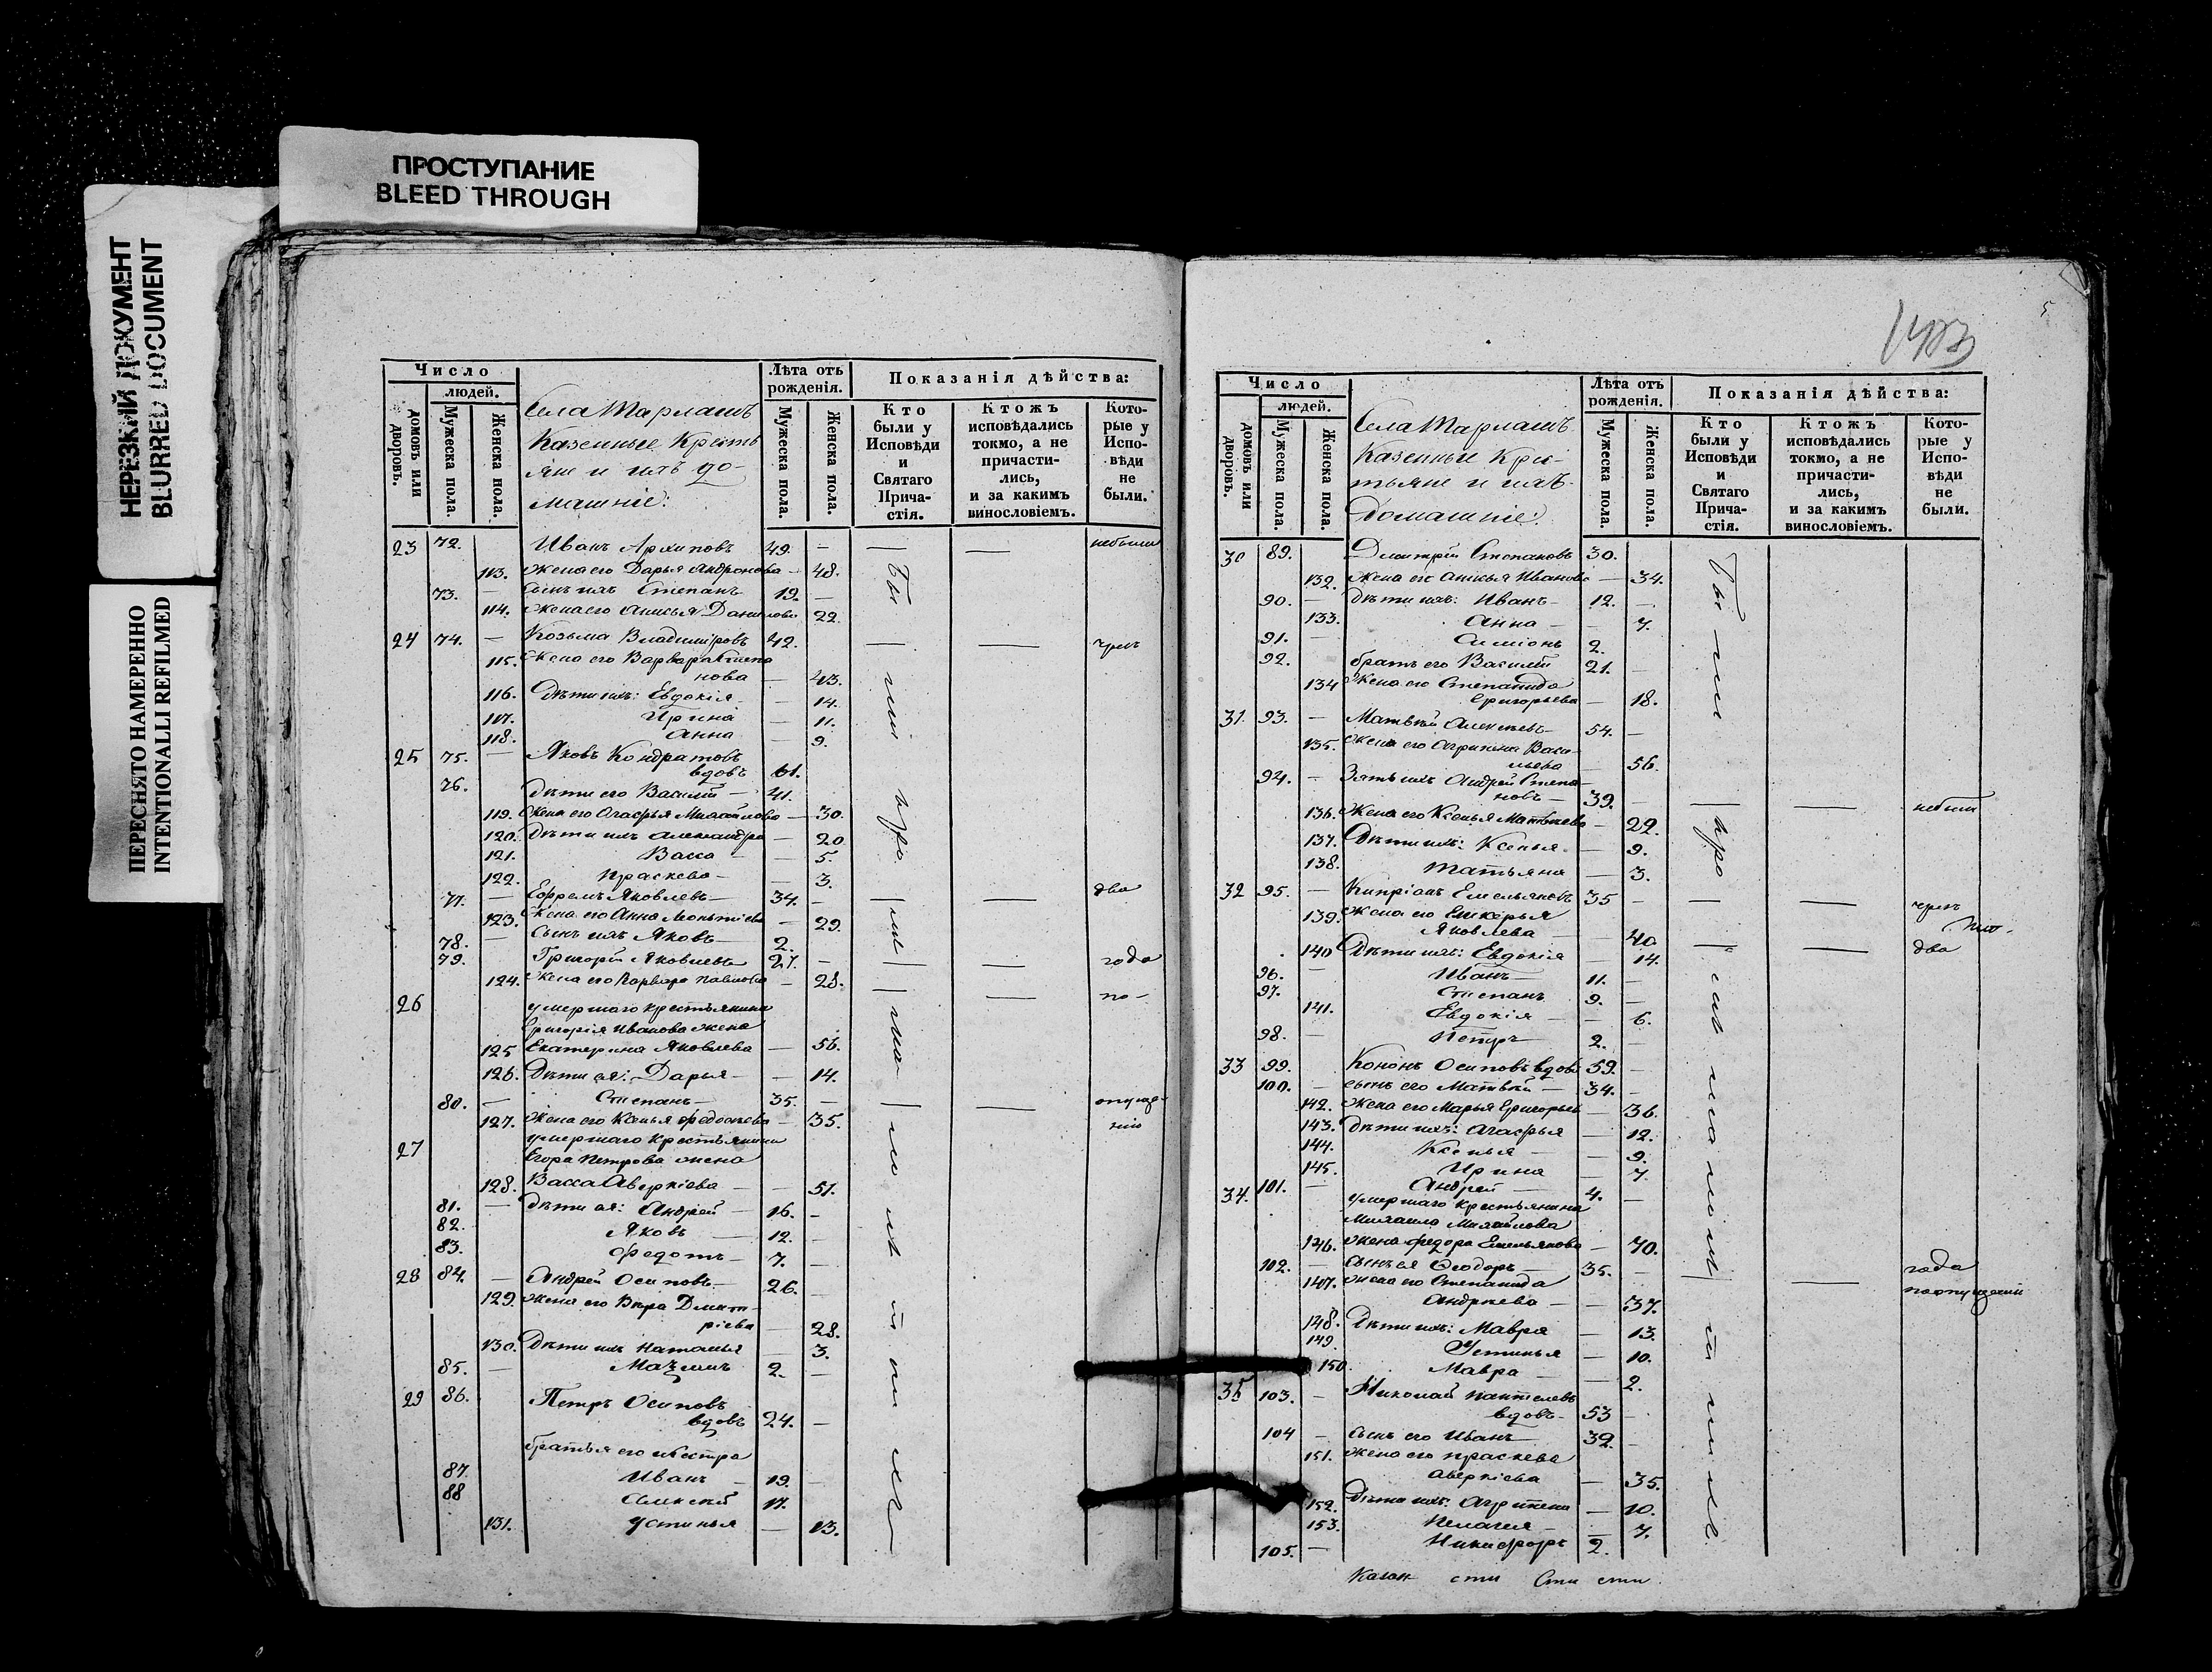 ПРОСТУПАНИЕ
BLEED THROUGH
НЕРЕЗКИЙ ДОКУМЕНТ
BLURRED DOCUMENT
ПЕРЕСНЯТО НАМЕРЕННО
INTENTIONALLI REFILMED
Число
людей.
домовъ или дворовъ.
Мужеска пола.
Женска пола.
Села Тарлашъ
Казенные Кресть
яне и ихъ до-
машніе:
Лѣта отъ рожденія.
Мужеска пола.
Женска пола.
Показанія дѣйства:
Кто были у Исповѣди и Святаго Прича-стія.
Ктожъ исповѣдались токмо, а не причасти-лись, и за какимъ винословіемъ.
Кото-рые у Испо-вѣди не были.
23 72. Иванъ Архиповъ 49. — — — небыли
113. Жена его Дарья Андронова — 48.
73. — Сынъ ихъ Степанъ 19. —
114. Жена его Анисья Данилова 22.
24 74. — Козьма Владиміровъ 42. — —
115. Жена его Варвара
нова — 43.
116. Дѣти ихъ: Евдокія — 14.
117. Ирина — 11.
118. Анна — 9.
25 75. — Яковъ Кондратовъ
вдовъ 61.
76. Дѣти его Василій — 41.
119. Жена его Агафья Михайлова — 30.
120. Дѣти ихъ Александра — 20
121. Васса — — 5.
122. Праскева — — 3.
77. — Ефремъ Яковлевъ — 34. — — — два
123. Жена его Анна — 29.
78. — Сынъ ихъ Яковъ — 2.
79. Григорій Яковлевъ 27. — — года
124. Жена его Варвара Павлова — 28.
26 умершаго крестьянина — по-
Григорія Иванова жена
125 Екатерина Яковлева — 56.
126. Дѣти ея: Дарья — — 14.
80. — Степанъ — 35. — — — опуще-
127. Жена его Ксенья Федосѣева — 35. нію
27 умершаго крестьянина
Егора Петрова жена
128. Васса Аверкіева — — 51.
81. — Дѣти ея: Андрей — 16. —
82. Яковъ — 12. —
83. Федотъ — 7. —
28 84. — Андрей Осиповъ — 26. —
129. Жена его Вѣра Дмит-
ріева — 28.
130. Дѣти ихъ Наталья — 3.
85. — 2. —
29 86. Петръ Осиповъ
вдовъ 24. —
братья его и сестра
87. Иванъ — 19. —
88 Алексѣй 17.
131. Устинья — 13.
Были при
5
Число
людей.
домовъ или дворовъ.
Мужеска пола.
Женска пола.
Села Тарлашъ
Казенные Крес-
тьяне и ихъ
Домашніе:
Лѣта отъ рожденія.
Мужеска пола.
Женска пола.
Показанія дѣйства:
Кто были у Исповѣди и Святаго Прича-стія.
Ктожъ исповѣдались токмо, а не причасти-лись, и за какимъ винословіемъ.
Кото-рые у Испо-вѣди не были.
30 89. Дмитрій Степановъ 30.
132. Жена его Анисья Иванова — 34.
90. — Дѣти ихъ: Иванъ — 12. —
133. Анна — — 7.
91. — Симіонъ 2.
92. братъ его Василій 21. —
134 Жена его Степанида
Григорьева — 18.
31. 93. — Матвѣй Алексѣевъ — 54. —
135. Жена его Агрипина Васи-
льева — 56.
94. — Зять ихъ Андрей Степа-
новъ — 39. — — — небыли
136. Жена его Ксенья Матвѣева — 29.
137. Дѣти ихъ: Ксенья — 9.
138. Татьяна — 3.
32 95. — Кипріанъ Емельяновъ 35 — — —
139. Жена его Гликерья
Яковлева — 40
140 Дѣти ихъ: Евдокія — 14. — — два
96. — Иванъ — 11. —
97. Степанъ 9. —
141. Евдокія — — 6.
98. — Петръ — 2. —
33 99. Кононъ Осиповъ вдовъ 59. —
100. — сынъ его Матвѣй — 34. —
142. Жена его Марья Григорьев — 36.
143. Дѣти ихъ: Агафья — 12.
144. Ксенья — — 9.
145. Ирина — 7.
34. 101. — Андрей — 4. —
умершаго крестьянина
Михаила Михайлова
146. жена Федора Емельянова — 70.
102. — Сынъ ея Ѳеодоръ — 35. — — года
147. Жена его Степанида поопущенію
Андреева — — 37.
148. Дѣти ихъ: Мавра — 13.
149. Устинья — 10.
150. Мавра — — 2.
35 103. — Николай Пантелеевъ
вдовъ — 53 —
104 — Сынъ его Иванъ — 32. —
151. Жена его Праскева
Аверкіева — 35.
152. Дѣти ихъ: Агрипена — 10.
153. Пелагея — — 7.
105. — Никифоръ 2.
Были при